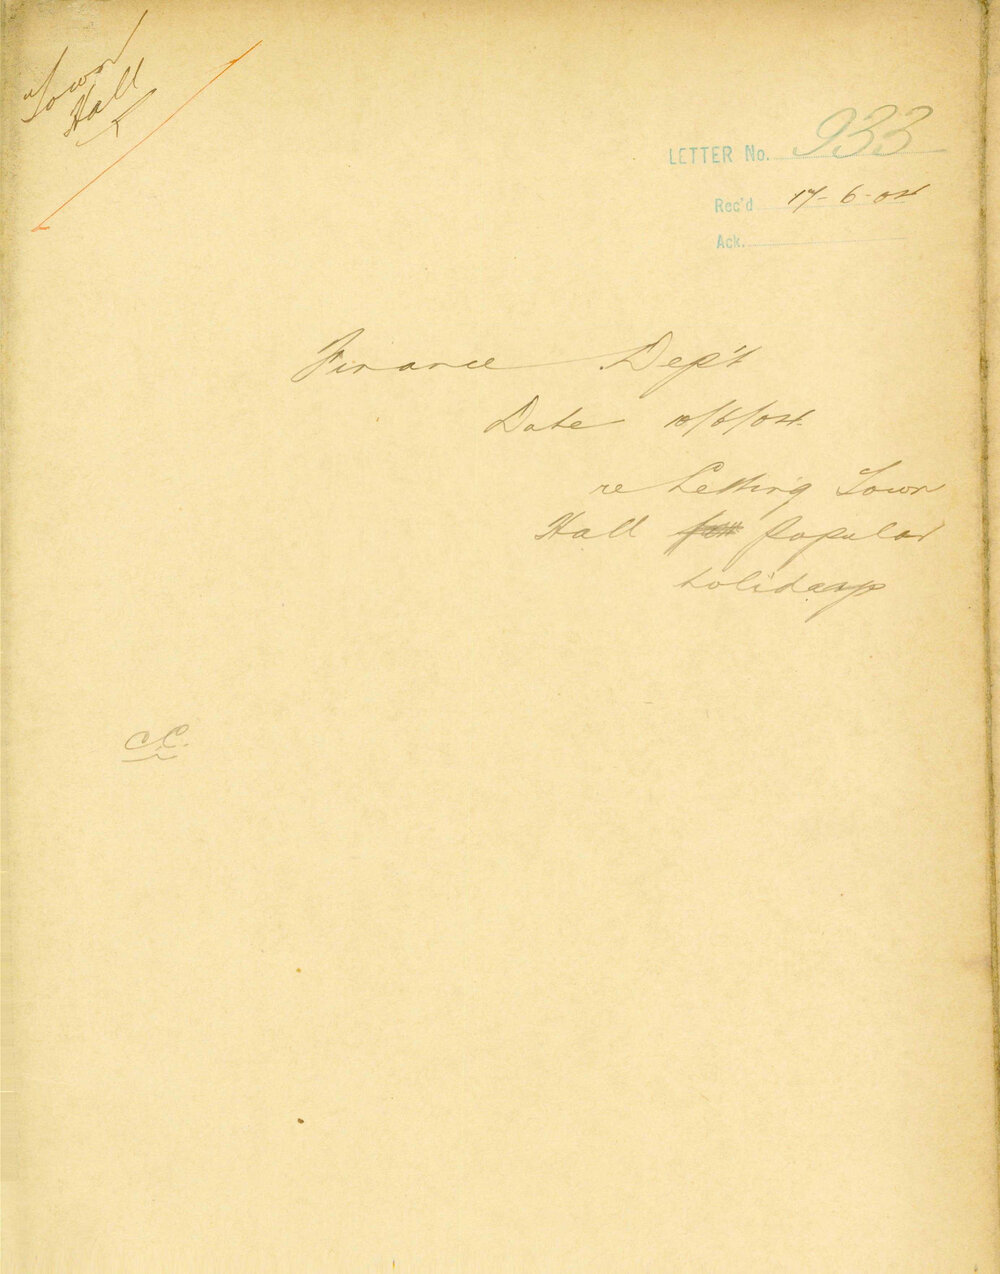 Town
Hall
LETTER No. 933
Rec'd 17-6-04
Ack.
Finance Dep't
Date 10/6/04.
re Letting Town
Hall popular
holidays
C.C.